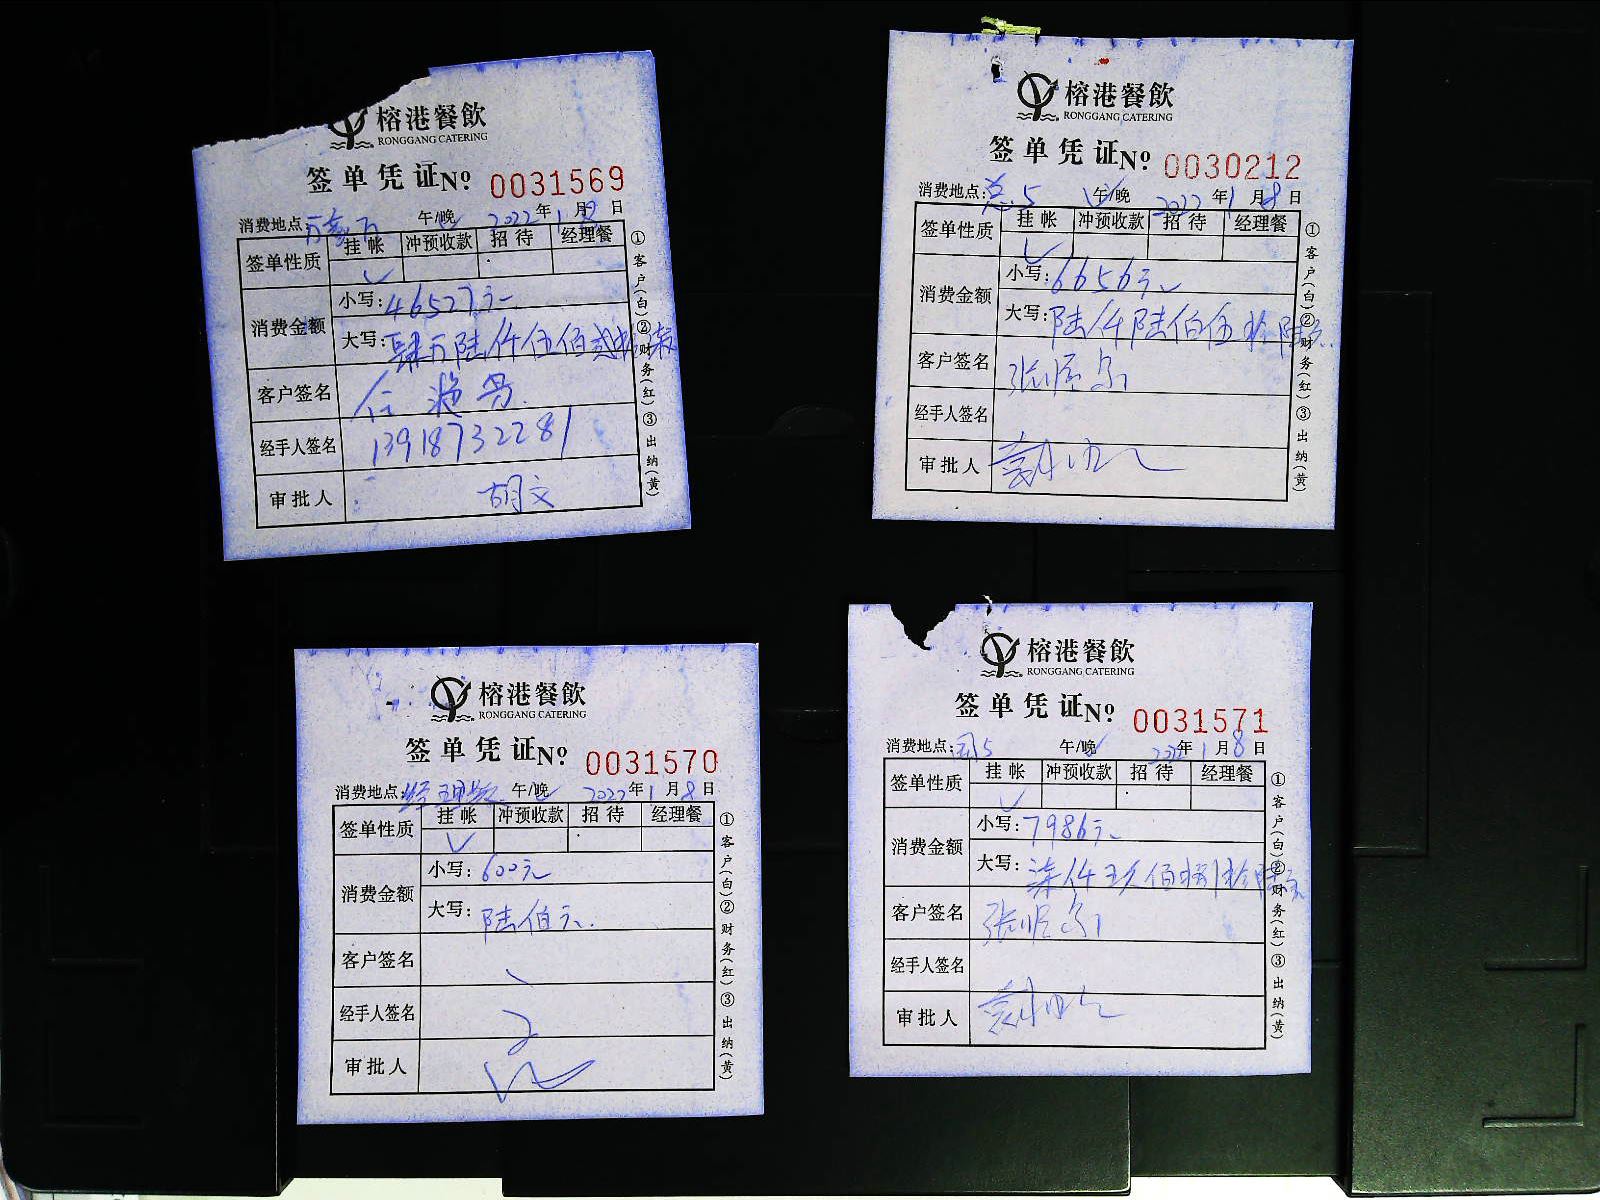 榕港餐飲
RONGGANG CATERING
签单凭证 No 0031569
消费地点: 午/晚 2022年1月8日
签单性质 挂帐 冲预收款 招待 经理餐
✓
消费金额 小写: 46527元
大写: 肆万陆仟伍佰贰拾柒
客户签名
经手人签名 13918732281
审批人 胡文
①客户(白)②财务(红)③出纳(黄)
榕港餐飲
RONGGANG CATERING
签单凭证 No 0030212
消费地点: 总5 午/晚 2022年1月8日
签单性质 挂帐 冲预收款 招待 经理餐
✓
消费金额 小写: 6656元
大写: 陆仟陆佰伍拾陆元
客户签名
经手人签名
审批人
①客户(白)②财务(红)③出纳(黄)
榕港餐飲
RONGGANG CATERING
签单凭证 No 0031570
消费地点: 经理餐 午/晚 2022年1月8日
签单性质 挂帐 冲预收款 招待 经理餐
✓
消费金额 小写: 600元
大写: 陆佰元
客户签名
经手人签名
审批人
①客户(白)②财务(红)③出纳(黄)
榕港餐飲
RONGGANG CATERING
签单凭证 No 0031571
消费地点: 午/晚 2022年1月8日
签单性质 挂帐 冲预收款 招待 经理餐
✓
消费金额 小写: 7986元
大写: 柒仟玖佰捌拾陆元
客户签名
经手人签名
审批人
①客户(白)②财务(红)③出纳(黄)